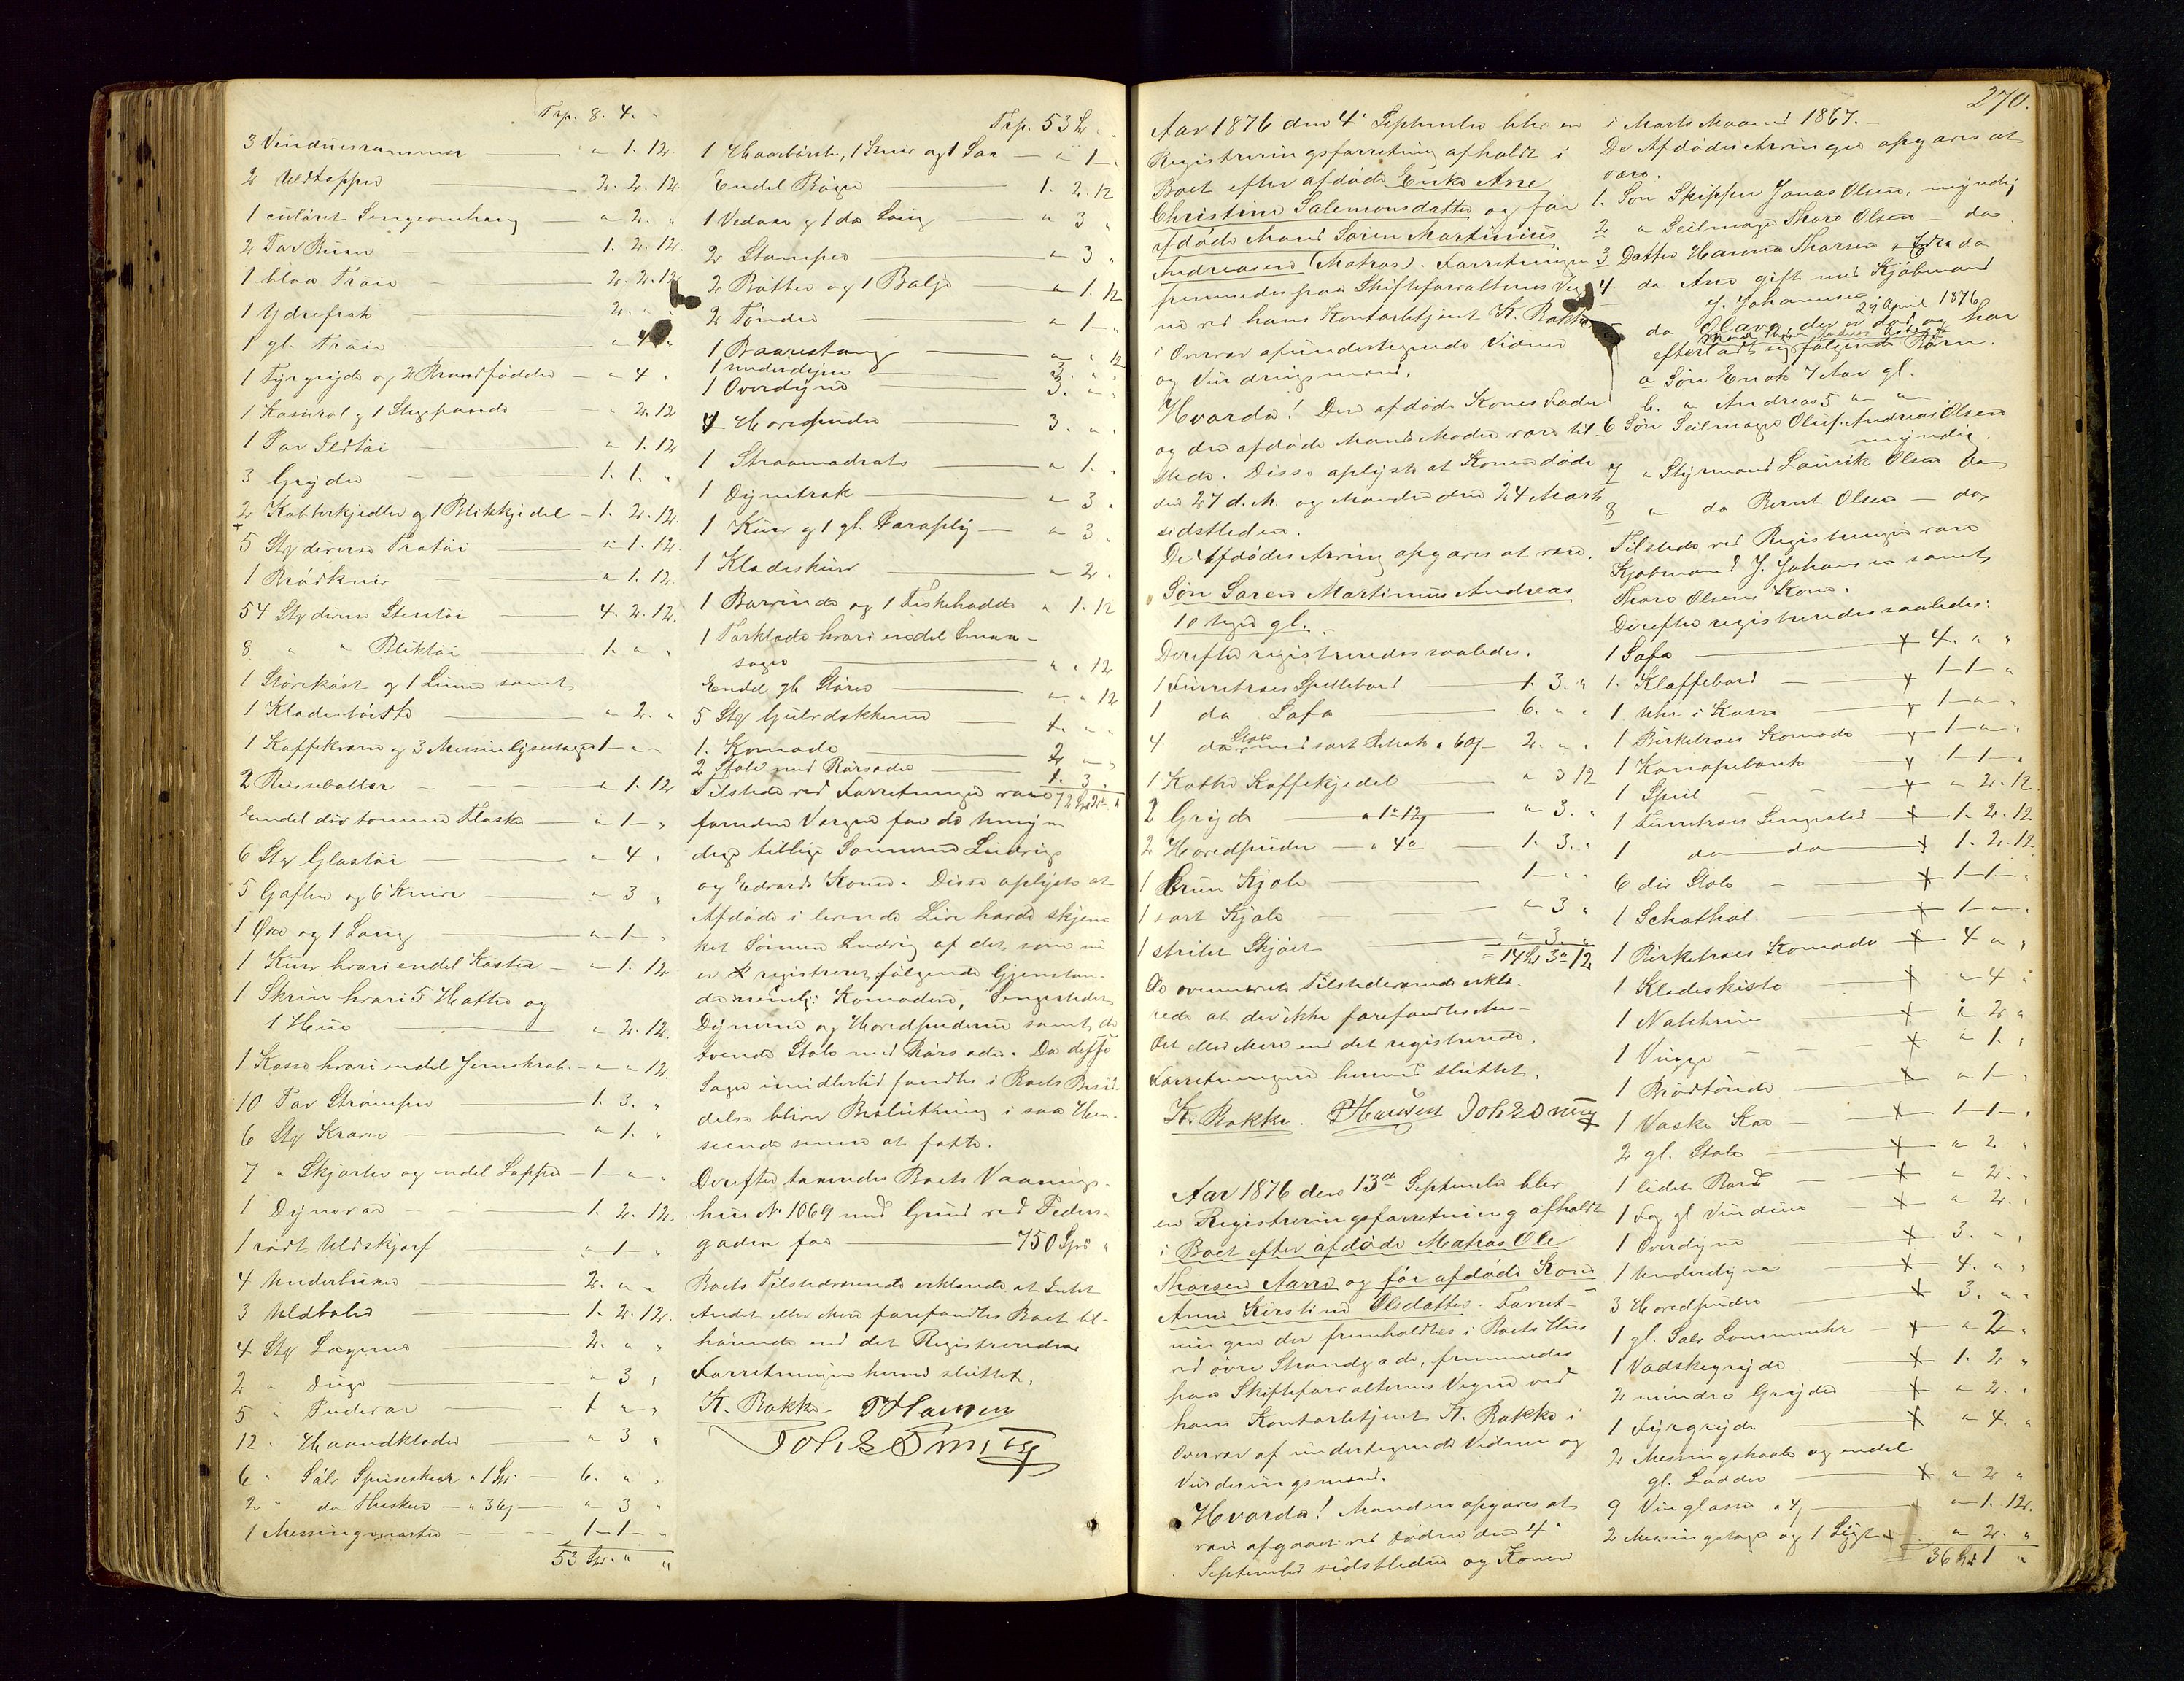 Trp. 8. 4. "
3 Vinduesrammer — " 1. 12.
2 Uldtæpper — 2. 2. 12.
1 culört Sengeomhang — " 2. "
2 Par Buxer 1. 2. 12.
1 blaa Tröie — 2. 2. 12
1 Ydrefrak — 2. " "
1 gl. Tröie — " 4 "
1 Fyrgryde og 2 Brandfödder — " 4 "
1 Kasserol og 1 Stegepande — " 2. 12
1 Par Seltöi — " 1. 12
3 Gryder — 1. 1. "
2 Kobberkjedler og 1 Blikkjedel — 1. 2. 12.
5 Stk diverse Trætöi — " 1. 12
1 Brödkniv — " 1. 12
54 Stk diverse Stentöi — 4. 2. 12.
8 " " Bliktöi — 1. " "
1 Störrekost og 1 Linne samt
1 Klædesbörste — " 2. "
1 Kaffekværn og 3 Messinglysestager 1 " "
2 Risseboller — " 1. 12
Endel div tomme Flasker — " 1 "
6 Stk Glastöi — " 4 "
5 Gafler og 6 Knive — " 3 "
1 Öxe og 1 Saug — " 1 "
1 Kurv hvori endel Koster — " 1. 12
1 Skrin hvori 5 Hatte og
1 Hue — " 2. 12.
1 Kasse hvori endel Jernskrab — " " 12.
10 Par Strömper — 1. 3. "
6 Stk Kraver — " 1. "
7 " Skjorter og endel Lapper — 1 " "
1 Dynevar — 1. 2. 12.
1 rödt Uldskjærf — " 1 "
4 Underbuxer — 2. " "
3 Uldboler — 1. 2. 12.
4 Stk Lagener — 2. " "
2 " Duge — " 3 "
5 " Pudevar — 1 " "
12 " Haandklæder — " 3 "
6 " Sölv Spiseskeer a 1 Sp — 6. " "
2 " do Theskeer — a 36 s — " 3 "
1 Messingmorter — 1 1 "
53 Sp. " "
Trp. 53 Sp. " "
1 Haarbörste, 1 Kniv og 1 Sax — " 1 "
Endel Böger — 1. 2. 12
1 Vedaxe og 1 do Saug — " 3 "
2 Stamper — " 3 "
2 Bötter og 1 Balje — " 1. 12
2 Tönder — " 1 "
1 Baarestang — " " 12
1 Underdyne — 3. " "
1 Overdyne — 3. " "
4 Hovedpuder — 3. " "
1 Straamadrats — " 1. "
1 Dynetræk — " 3 "
1 Kurv og 1 gl. Paraply — " 3 "
1 Klædeskurv — " 2. "
1 Barvinde og 1 Fiskehodde " 1. 12
1 Torklæde hvori endel Smaa-
sager — " " 12
Endel gl. Större — " " 12
5 Stk Gulvdækkener — 1. " "
1. Komode — 2 " "
2 Stole med Rörsæder — 1. 3 "
Tilstede ved Forretningen var 72 Sp 2 "
foruden Værgen for de umyn
dige tillige Sönnerne Ludvig
og Edvards Koner. Disse oplyste at
Afdöde i levende Live havde skjen-
ket Sönnen Ludvig af det som nu
er registreret, fölgende Gjenstan-
de nemlig: Komoden, Sengesteder
Dynerne og Hovedpuderne samt de
tvende Stole med Rörsæder. Da disse
Sager imidlertid fandtes i Boets Besid-
delse bliver Beslutning i saa Hen-
seende senere at fatte.
Derefter taxeredes Boets Vaanings-
hus No 1069 med Grund ved Peders-
gaden for — 750 Spd "
Boets Tilstedeværende erklærede at Intet
Andet eller Mere forefandtes Boet til-
hörende end det Registrerede.
Forretningen hermed sluttet.
K. Bakke. P Hansen
Joh. E Omsig
270.
Aar 1876 den 4de September blev en
Registreringsforretning afholdt i
Boet efter afdöde Enke Ane
Christine Salemonsdatter og för
afdöde Mand Sören Martinius
Andreasen (Matros). Forretningen
fremmedes paa Skifteforvalterens Veg
ne ved hans Kontorbetjent K. Bakke
i Overvær af undertegnede Vidner
og Vurderingsmænd.
Hvorda! Den afdöde Kones Fader
og den afdöde Mands Moder vare til-
stede. Disse oplyste at Konen döde
den 27 d. M. og Manden den 24 Marts
sidstleden.
De Afdödes Arving opgaves at være.
Sön Sören Martinius Andreas
10 Uger gl.
Derefter registreredes saaledes.
1 Furutræes Spillebord — 1. 3. "
1 do Sofa — 6. " "
4 do Stole med sort Betræk a 60 s — 2. " "
1 Kobber Kaffekjedel " 3 12
2 Gryde — a 1 " 12 s — " 3. "
2 Hovedpuder — a 4 " 1. 3. "
1 Brun Kjole — 1 " "
1 sort Kjole — " 3 "
1 stribet Skjört — " 3. "
= 14 Sp 3 " 12
De ovennævnte Tilstedeværende erklæ-
rede at der ikke forefandtes An-
det eller Mere end det registrerede.
Forretningen hermed sluttet.
K. Bakke. P Hansen Joh E Omsig
Aar 1876 den 13de September blev
en Registreringsforretning afholdt
i Boet efter afdöde Matros Ole
Thorsen Aarre og för afdöde Kone
Anne Kirstine Olsdatter. Forret-
ningen der fremholdtes i Boets Hus
ved övre Strandgade, fremmedes
paa Skifteforvalterens Vegne ved
hans Kontorbetjent K. Bakke i
Overvær af undertegnede Vidner og
Vurderingsmænd.
Hvorda! Manden opgaves at
være afgaaet ved Döden den 4de
September sidstleden og Konen
i Marts Maaned 1867.
De Afdödes Arvinger opgaves at
være.
1. Sön Skipper Jonas Olsen, myndig
2 " Seilmager Thore Olsen — do
3 Datter Hanna Thorsen " Enke do
4 do Ane gift med Kjöbmand
J. Johannesen
5 do Olava der er död 29 April 1876 og har
efterladt sig fölgende Börn.
a Sön Enok 7 Aar gl.
b. " Andreas 5 " "
6 Sön Seilmager Oluf Andreas Olsen
myndig.
7 " Styrmand Laurik Olsen do
8 " do Bernt Olsen — do
Tilstede ved Registreringen vare
Kjøbmand J. Johannesen samt
Thore Olsens Kone.
Derefter registreredes saaledes:
1 Sofa — x 4. " "
1. Klaffebord — x 1 1 "
1 Uhr i Kasse — x 1 " "
1 Birketræes Komode — x 1 " "
1 Kanapebænk — x 1 1 "
1 Speil — x " 2. 12
1 Furutræes Sengested — x 1. 2. 12
1 do do — x 1. 2. 12
6 div Stole — x 1 1 "
1 Schathol — x 1 " "
1 Birketræes Komode — x 4 " "
1 Klædeskiste — x " 4 "
1 Natskrin — x " 2 "
1 Vugge — x " 1. "
1 Brödtönde — x " 1 "
1 Vaske Kar — x 1 1 "
2 gl. Stole — x " 2 "
1 lidet Bord — x " 2. "
1 Fag gl Vinduer — x " 2. "
1 Overdyne — x 3. " "
1 Underdyne — x 4. " "
3 Hovedpuder — x 3. " "
1 gl. Sölv Lommeuhr — x " 2 "
1 Vadskegryde — x 1. 2 "
2 mindre Gryder — x " 2. "
1 Fyrgryde — x " 4. "
2 Messingskaale og endel
gl. Lodder — x " 2 "
9 Vinglasse a 4 s — " 1. 12.
2 Messingstager og 1 Lygt x — " 2. "
36 Spd 1 "